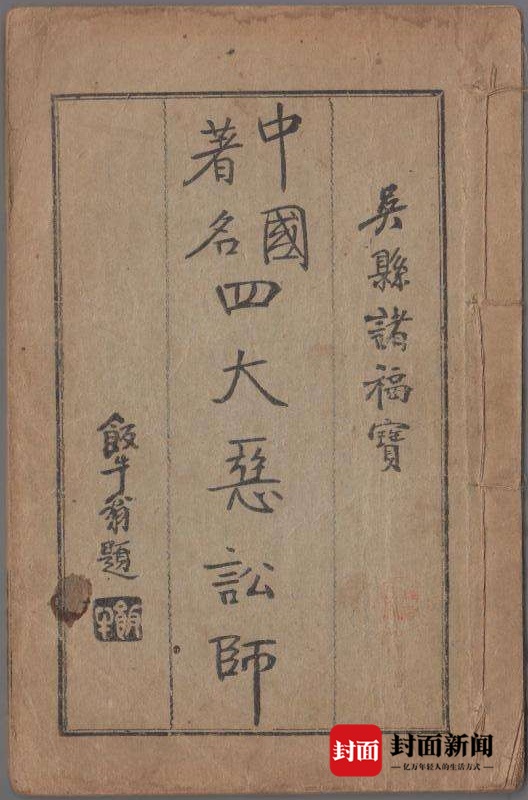 吳縣諸福寶
中國
著名
四大惡訟師
飯牛翁題
飯牛
封面
封面新闻
亿万年轻人的生活方式